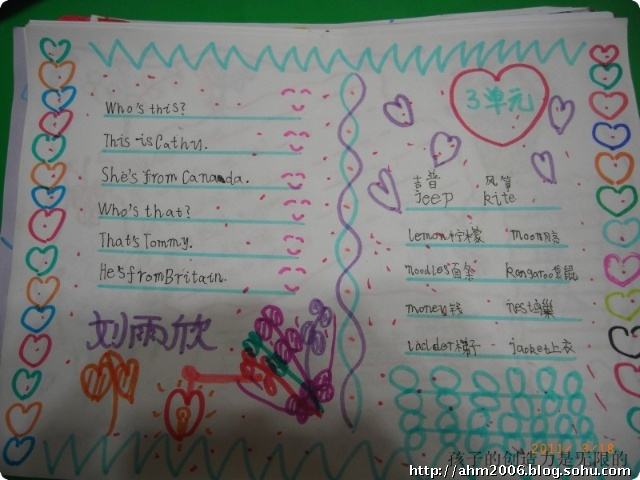 Who's this?
This is Cathy.
She's from Cananda.
Who's that?
That's Tommy.
He's from Britain.
刘雨欣
3单元
吉普 风筝
jeep kite
lemon柠檬 moon月亮
noodles面条 kangaroo袋鼠
money钱 nest鸟巢
ladder梯子 jacket上衣
2011 3/18
孩子的创造力是无限的
http://ahm2006.blog.sohu.com